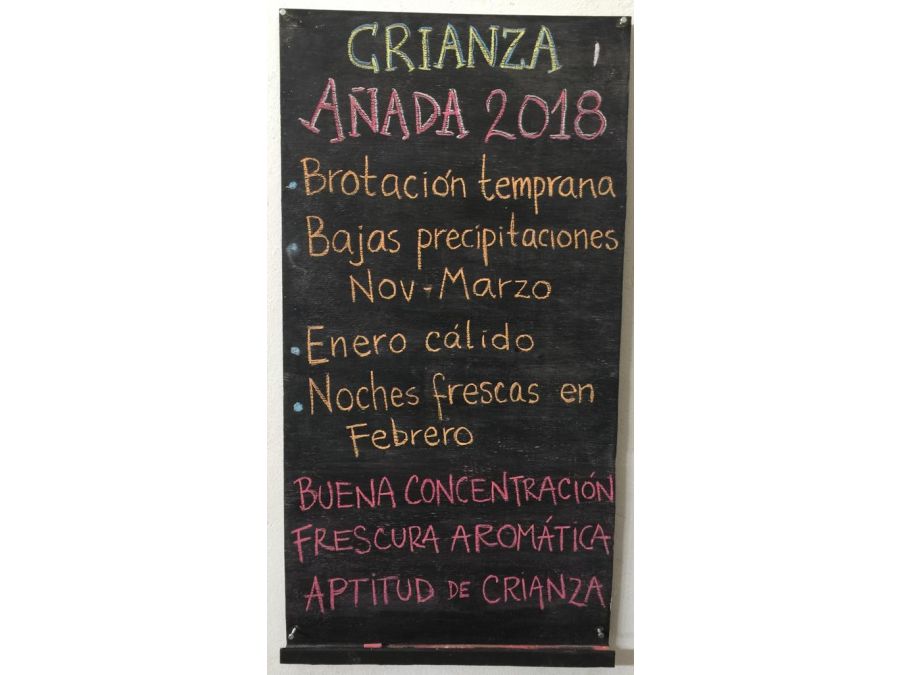 CRIANZA
AÑADA 2018
• Brotación temprana
• Bajas precipitaciones
Nov-Marzo
• Enero cálido
• Noches frescas en
Febrero
BUENA CONCENTRACIÓN
FRESCURA AROMÁTICA
APTITUD DE CRIANZA